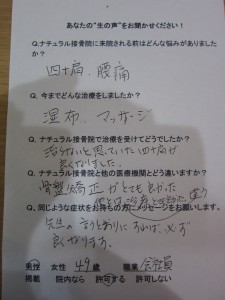 あなたの"生の声"をお聞かせください！
Q.ナチュラル接骨院に来院される前はどんな悩みがありましたか？
四十肩、腰痛
Q.今までどんな治療をしましたか？
湿布、マッサージ
Q.ナチュラル接骨院で治療を受けてどうでしたか？
治らないと思っていた四十肩が
良くなりました。
Q.ナチュラル接骨院と他の医療機関とどう違いますか？
骨盤矯正がとても良かった
Q.同じような症状をお持ちの方にメッセージをお願いします。
先生の言うとおりにすれば、必ず
良くなります。
男性 女性 49歳 職業 会社員
掲載 院内なら 許可する 許可しない